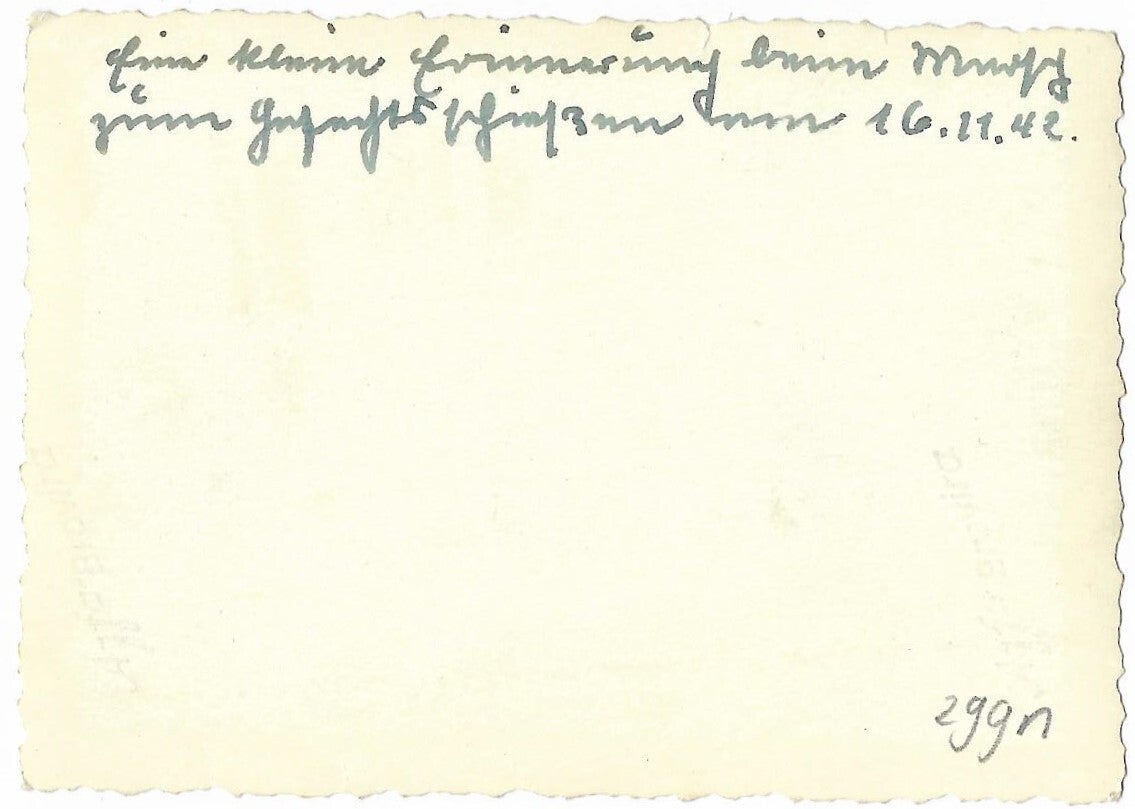 Eine kleine Erinnerung beim Marsch
zum Gefechtsschießen am 16.11.42.
zggn